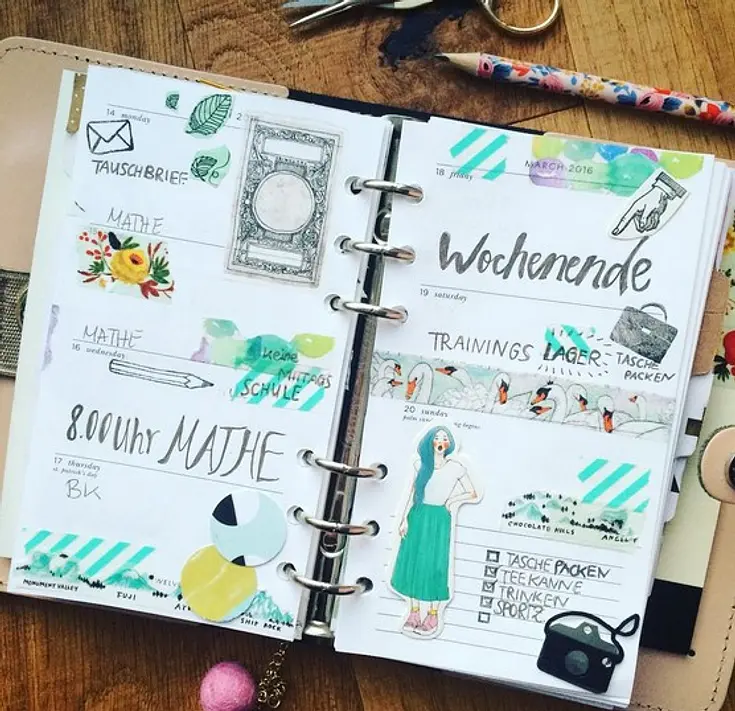 14 monday
TAUSCHBRIEF
MATHE
MATHE
16 wednesday
Keine
MITTAGS
SCHULE
8.00 Uhr MATHE
17 thursday
st. patrick's day
BK
MONUMENT VALLEY
FUJI
SHIP ROCK
MARCH 2016
18 friday
Wochenende
19 saturday
TRAININGS LAGER
TASCHE
PACKEN
20 sunday
CHOCOLATE HILLS
TASCHE PACKEN
TEEKANNE
TRINKEN